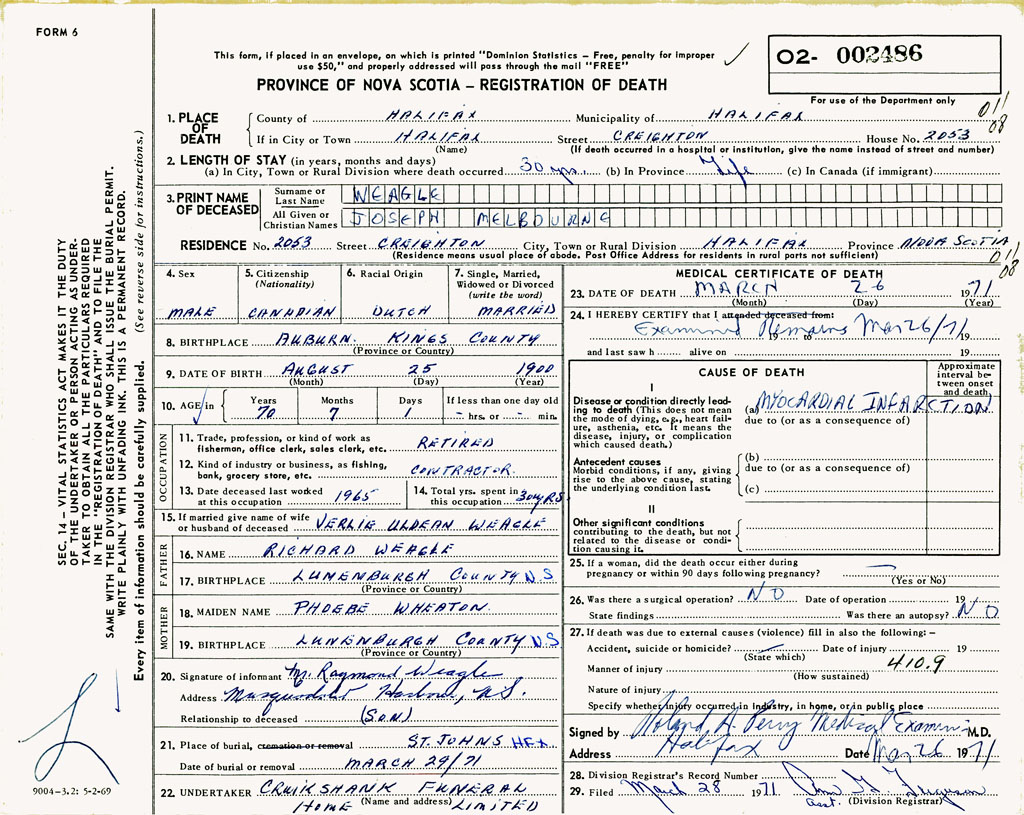 FORM 6
This form, if placed in an envelope, on which is printed "Dominion Statistics – Free, penalty for improper
use $50," and properly addressed will pass through the mail "FREE"
02- 002486
For use of the Department only
PROVINCE OF NOVA SCOTIA – REGISTRATION OF DEATH
011
08
1. PLACE OF DEATH
County of HALIFAX Municipality of HALIFAX
If in City or Town HALIFAX Street CREIGHTON House No. 2053
(Name) (If death occurred in a hospital or institution, give the name instead of street and number)
2. LENGTH OF STAY (in years, months and days)
(a) In City, Town or Rural Division where death occurred 30 yrs. (b) In Province Life (c) In Canada (if immigrant)
3. PRINT NAME OF DECEASED
Surname or Last Name WEAGLE
All Given or Christian Names JOSEPH MELBOURNE
RESIDENCE No. 2053 Street CREIGHTON City, Town or Rural Division HALIFAX Province NOVA SCOTIA
(Residence means usual place of abode. Post Office Address for residents in rural parts not sufficient)
011
08
4. Sex
MALE
5. Citizenship
(Nationality)
CANADIAN
6. Racial Origin
DUTCH
7. Single, Married,
Widowed or Divorced
(write the word)
MARRIED
8. BIRTHPLACE AUBURN. KINGS COUNTY
(Province or Country)
9. DATE OF BIRTH AUGUST 25 1900
(Month) (Day) (Year)
10. AGE in
Years Months Days If less than one day old
70 7 1 – hrs. or – min.
OCCUPATION
11. Trade, profession, or kind of work as
fisherman, office clerk, sales clerk, etc. RETIRED
12. Kind of industry or business, as fishing,
bank, grocery store, etc. CONTRACTOR.
13. Date deceased last worked
at this occupation 1965
14. Total yrs. spent in
this occupation 30 yRS
15. If married give name of wife
or husband of deceased VERLIE ULDEAN WEAGLE
FATHER
16. NAME RICHARD WEAGLE
17. BIRTHPLACE LUNENBURGH COUNTY N.S
(Province or Country)
MOTHER
18. MAIDEN NAME PHOEBE WHEATON
19. BIRTHPLACE LUNENBURGH COUNTY N.S
(Province or Country)
20. Signature of informant Mr. Raymond Weagle
Address Musquodoboit Harbour, N.S.
Relationship to deceased (SON)
21. Place of burial, cremation or removal ST. JOHNS HFX
Date of burial or removal MARCH 29/71
22. UNDERTAKER CRUIKSHANK FUNERAL
(Name and address)
HOME LIMITED
MEDICAL CERTIFICATE OF DEATH
23. DATE OF DEATH MARCH 26 1971
(Month) (Day) (Year)
24. I HEREBY CERTIFY that I attended deceased from:
Examined Remains Mar 26/71
19 to 19
and last saw h alive on 19
CAUSE OF DEATH
Approximate
interval be-
tween onset
and death
I
Disease or condition directly lead-
ing to death (This does not mean
the mode of dying, e.g., heart fail-
ure, asthenia, etc. It means the
disease, injury, or complication
which caused death.)
(a) MYOCARDIAL INFARCTION
due to (or as a consequence of)
Antecedent causes
Morbid conditions, if any, giving
rise to the above cause, stating
the underlying condition last.
(b)
due to (or as a consequence of)
(c)
II
Other significant conditions
contributing to the death, but not
related to the disease or condi-
tion causing it.
25. If a woman, did the death occur either during
pregnancy or within 90 days following pregnancy?
(Yes or No)
26. Was there a surgical operation? NO Date of operation 19
State findings Was there an autopsy? NO
27. If death was due to external causes (violence) fill in also the following: –
Accident, suicide or homicide? Date of injury 19
(State which)
Manner of injury 410.9
(How sustained)
Nature of injury
Specify whether injury occurred in industry, in home, or in public place
Signed by Roland A. Perry Medical Examiner M.D.
Address Halifax Date Mar 26 1971
28. Division Registrar's Record Number
29. Filed March 28 1971 Ferguson
asst. (Division Registrar)
SEC. 14 – VITAL STATISTICS ACT MAKES IT THE DUTY
OF THE UNDERTAKER OR PERSON ACTING AS UNDER-
TAKER TO OBTAIN ALL THE PARTICULARS REQUIRED
IN THE "REGISTRATION OF DEATH" AND TO FILE THE
SAME WITH THE DIVISION REGISTRAR WHO SHALL ISSUE THE BURIAL PERMIT.
WRITE PLAINLY WITH UNFADING INK. THIS IS A PERMANENT RECORD.
Every item of information should be carefully supplied. (See reverse side for instructions.)
9004-3.2: 5-2-69